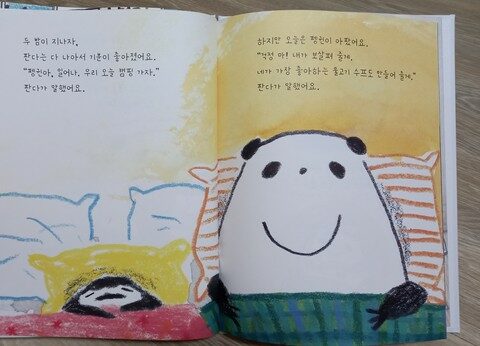 두 밤이 지나자,
판다는 다 나아서 기분이 좋아졌어요.
"펭귄아, 일어나. 우리 오늘 캠핑 가자."
판다가 말했어요.
하지만 오늘은 펭귄이 아팠어요.
"걱정 마! 내가 보살펴 줄게.
네가 가장 좋아하는 물고기 수프도 만들어 줄게."
판다가 말했어요.